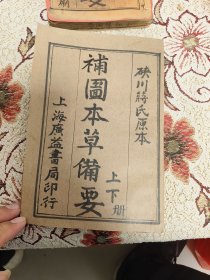 硤川蔣氏原本
補圖本草備要
上下册
上海廣益書局印行